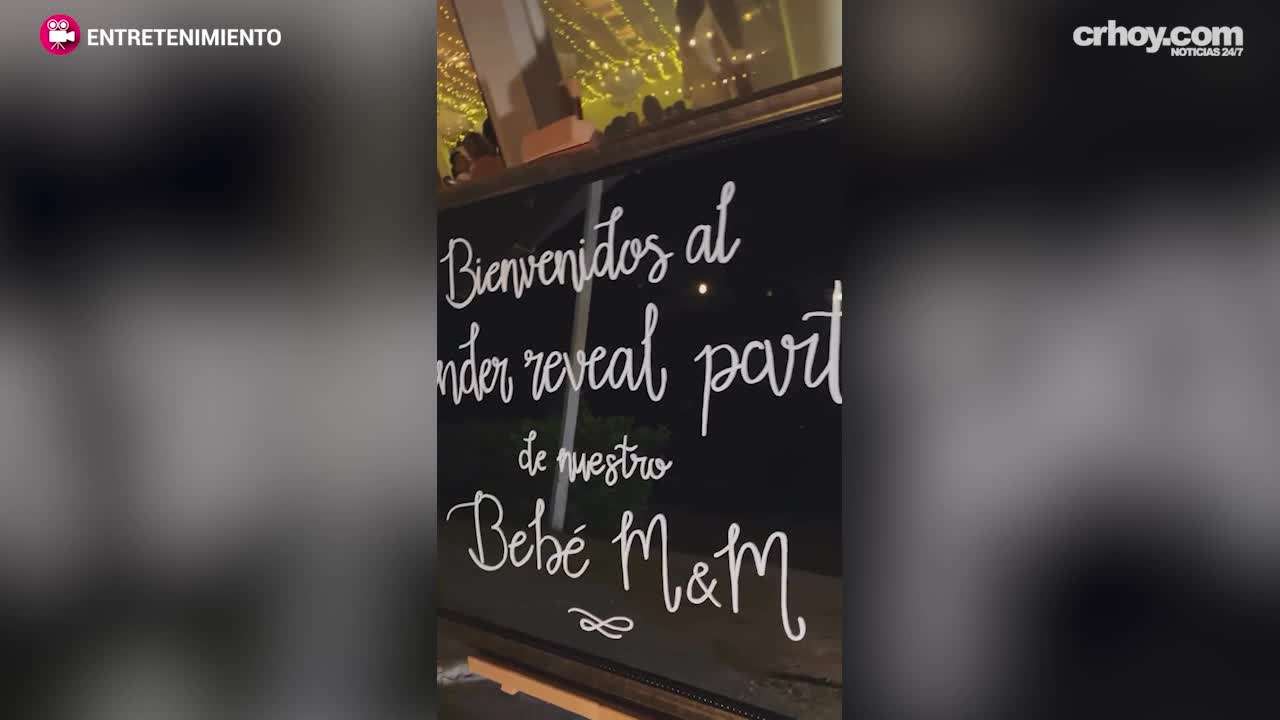 ENTRETENIMIENTO
crhoy.com
NOTICIAS 24/7
Bienvenidos al
nder reveal part
de nuestro
Bebé M&M